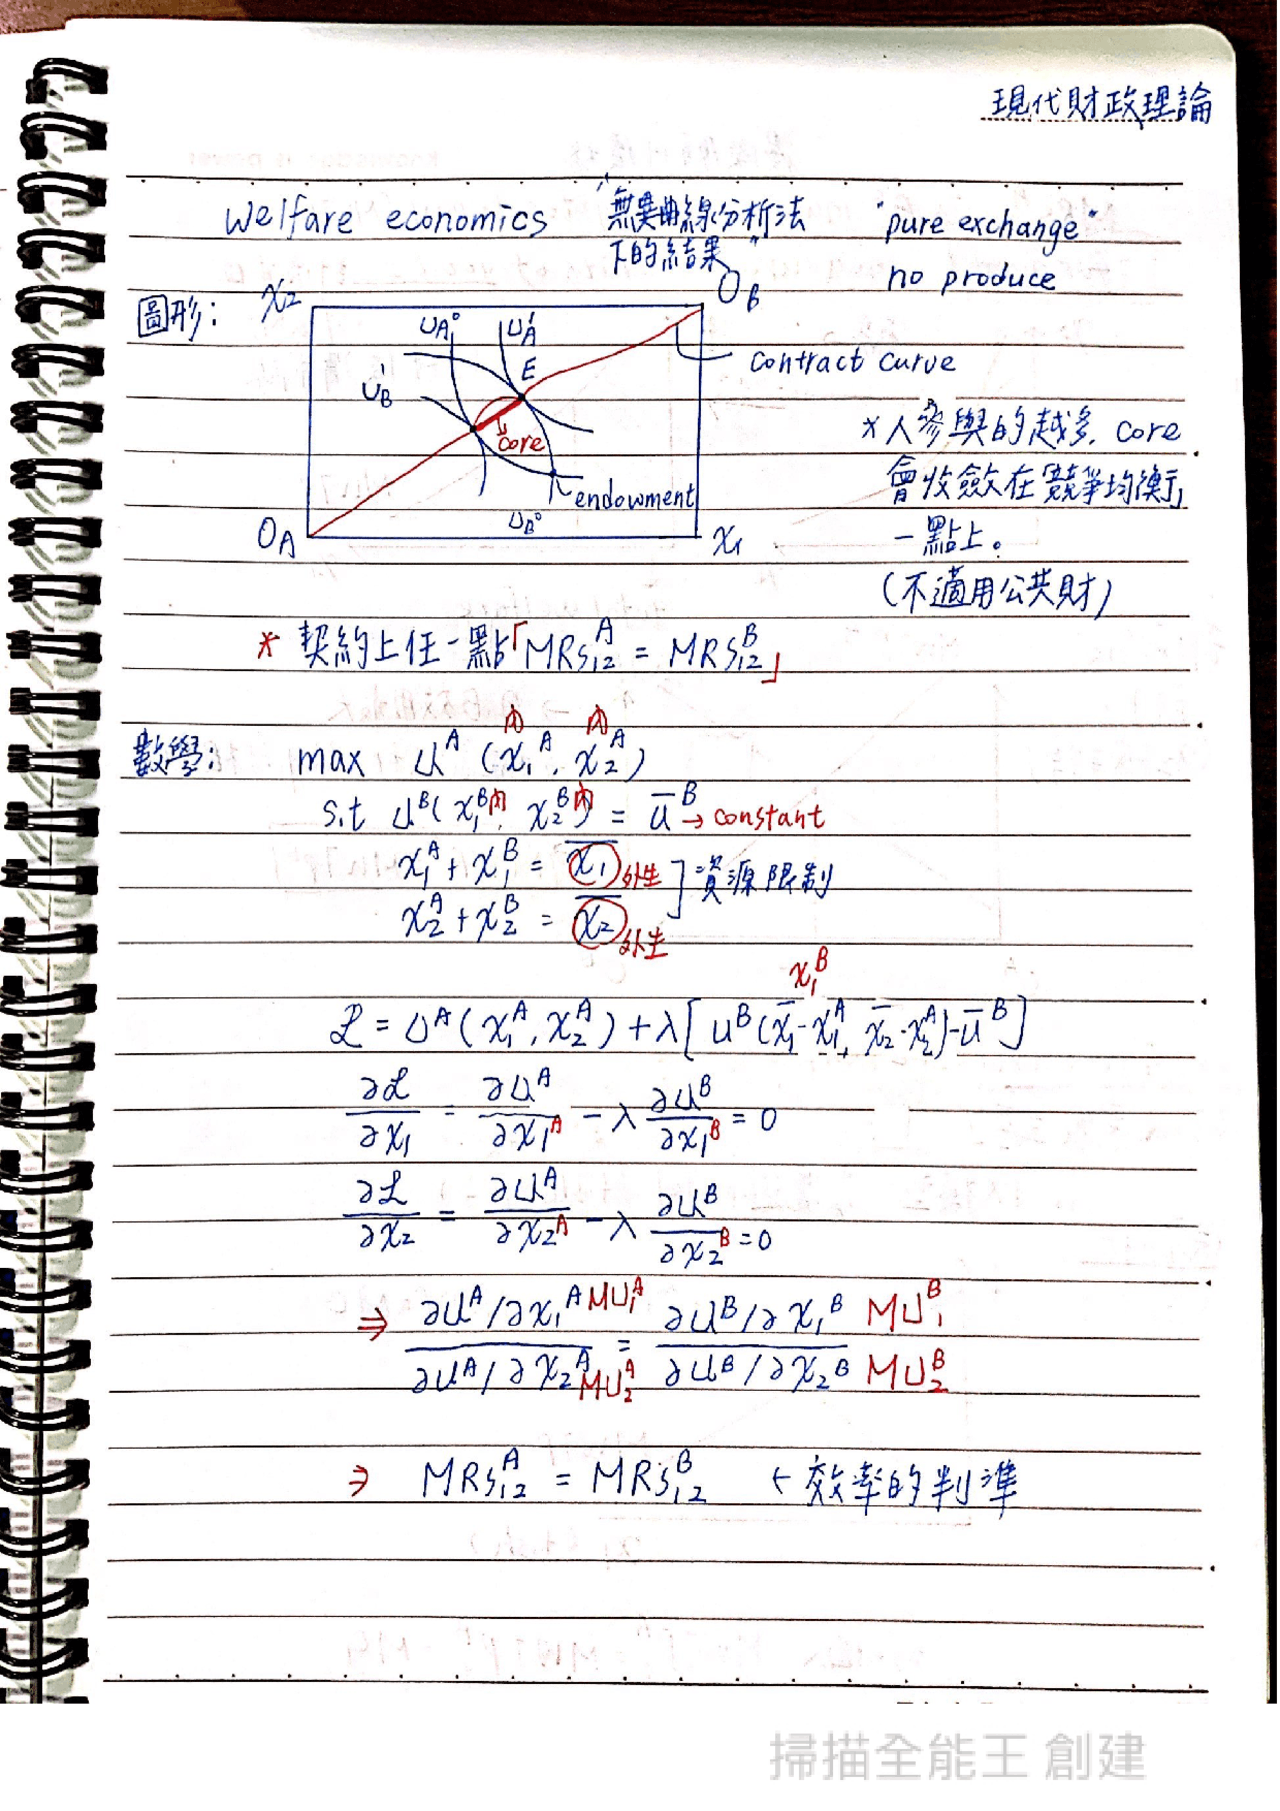 現代財政理論
Welfare economics "無異曲線分析法 "pure exchange"
下的結果" no produce
圖形:
X₂
O_B
U_A⁰ U_A¹
E
contract curve
U_B¹
core
endowment
U_B⁰
O_A
X₁
*人參與的越多, core
會收斂在「競爭均衡」
一點上。
(不適用公共財)
* 契約上任一點「MRS₁₂ᴬ = MRS₁₂ᴮ」
內 內
數學: max Uᴬ (x₁ᴬ, x₂ᴬ)
s.t Uᴮ( x₁ᴮ内, x₂ᴮ内) = Ūᴮ → constant
x₁ᴬ + x₁ᴮ = x̄₁ 外生 ] 資源限制
x₂ᴬ + x₂ᴮ = x̄₂ 外生
x₁ᴮ
ℒ = Uᴬ( x₁ᴬ, x₂ᴬ ) + λ[ Uᴮ (x̄₁ - x₁ᴬ, x̄₂ - x₂ᴬ) - ūᴮ ]
∂ℒ/∂x₁ = ∂Uᴬ/∂x₁ᴬ - λ ∂Uᴮ/∂x₁ᴮ = 0
∂ℒ/∂x₂ = ∂Uᴬ/∂x₂ᴬ - λ ∂Uᴮ/∂x₂ᴮ = 0
⇒ ∂Uᴬ/∂x₁ᴬ MU₁ᴬ = ∂Uᴮ/∂x₁ᴮ MU₁ᴮ
∂Uᴬ/∂x₂ᴬ MU₂ᴬ ∂Uᴮ/∂x₂ᴮ MU₂ᴮ
⇒ MRS₁₂ᴬ = MRS₁₂ᴮ ← 效率的判準
掃描全能王 創建